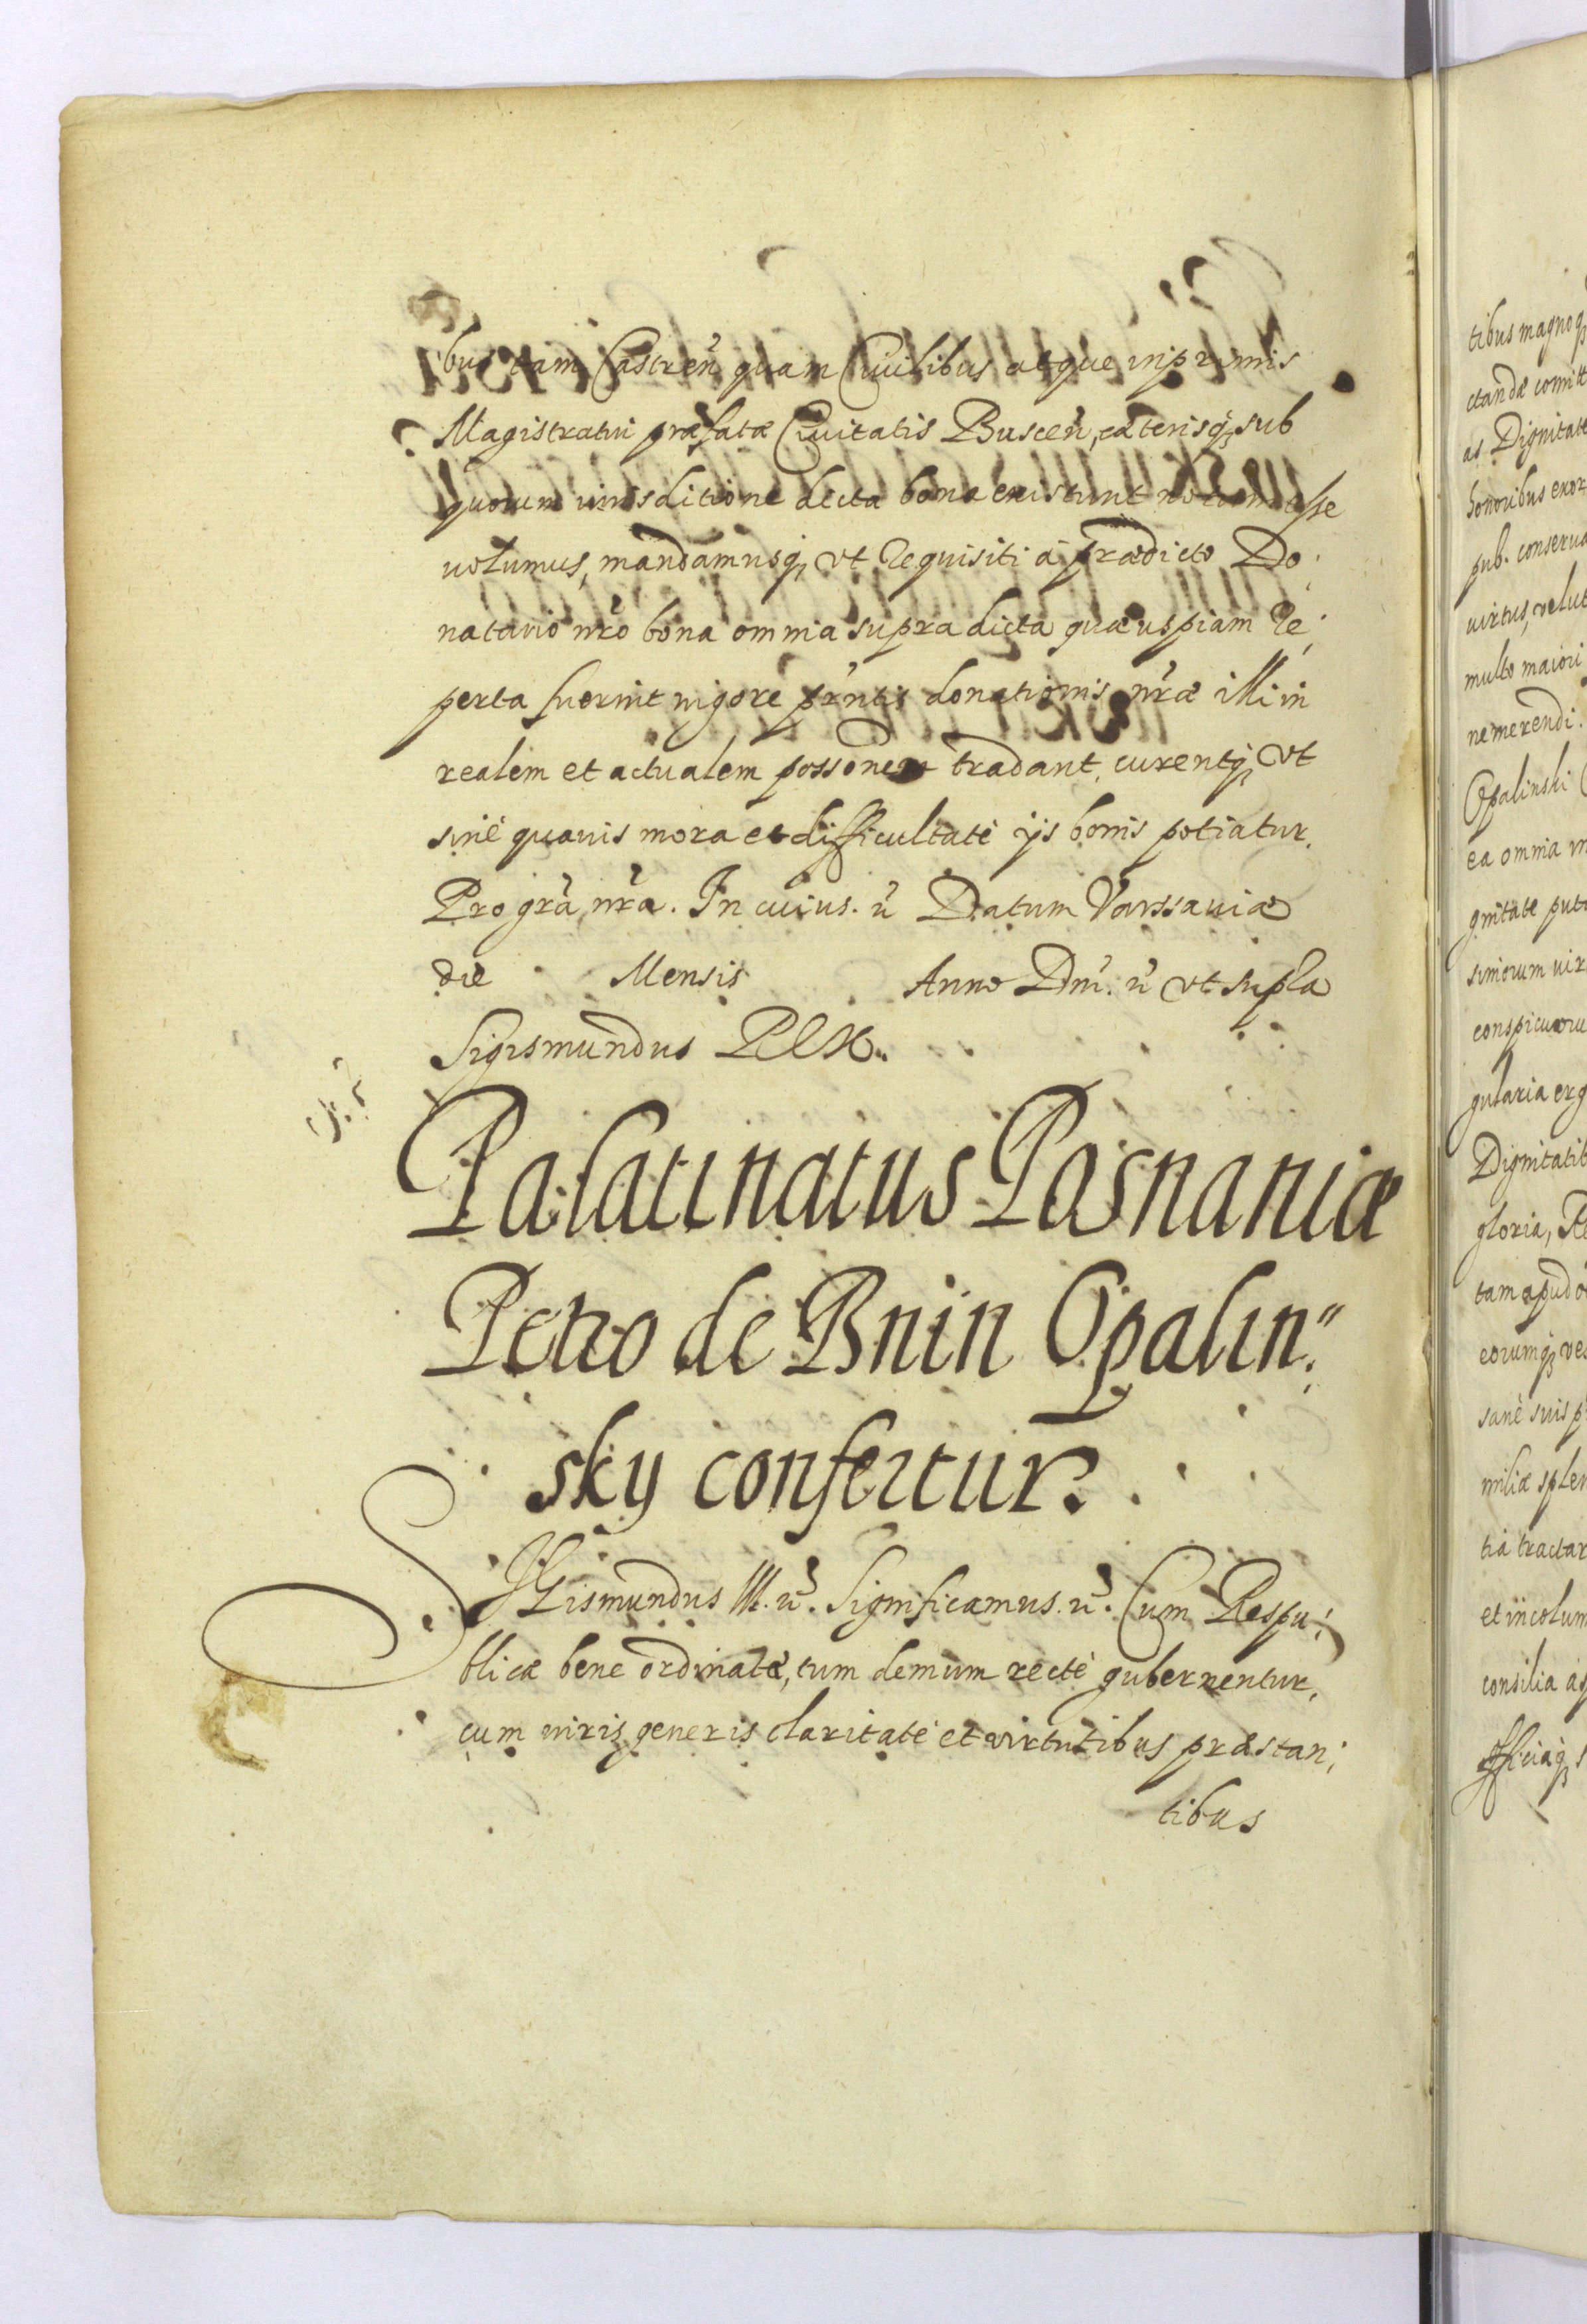 bus tam Castren̄ quam Ciuilibus atque inprimis
Magistratui præfatæ Ciuitatis Buscen̄, cæterisq́ꝫ sub
quorum iurisditione dicta bona existunt notum esse
uolumus, mandamusq́ꝫ vt Requisiti á prædicto Do:
natario nr̄o bona omnia supra dicta quæ uspiam Re:
perta fuerint uigore pr̄ntis donationis nr̄æ illi in
realem et actualem possonem tradant, curentq́ꝫ vt
sine quauis mora et difficultate ijs bonis potiatur.
Pro gr̄a nr̄a. In cuius. n̄ Datum Varssauiæ
die Mensis Anno Dni. n̄ vt supra
Sigismundus REX.
Palatinatus Posnaniæ
Petro de Bnin Opalin:
sky confertur.
SIGismundus III. n̄. Significamus. n̄. Cum Respu:
blicæ bene ordinatæ, tum demum recté gubernentur,
cum uiris generis claritate et virtutibus præstan:
tibus
tibus magnoq́ꝫ
ctandæ comitt
as Dignitate
honoribus exor
pub. conserua
uirtus, velut
multo maiori
ne merendi.
Opalinski
ea omnia
gnitate puta
simorum uir
conspicuoru
gularia erg
Dignitatib
gloria, Re
tam apud
eorumq́ꝫ ve
sané suis p
miliæ splen
tia tractar
et incolum
consilia
officiaq́ꝫ s